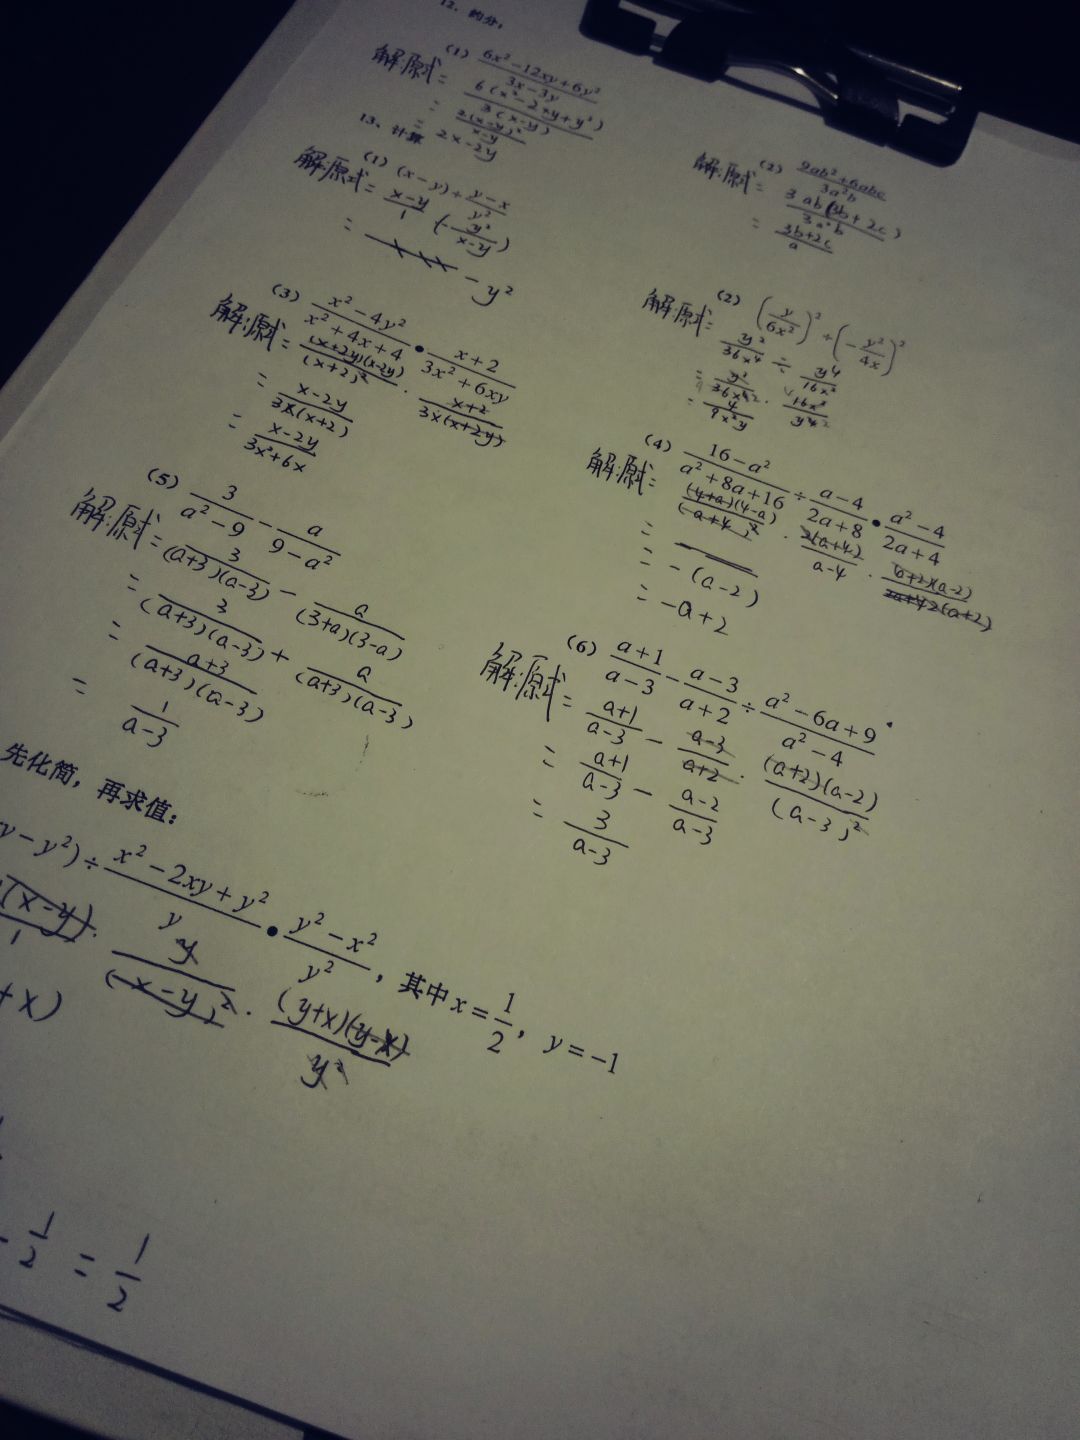 12、约分：
(1) \frac{6x^2-12xy+6y^2}{3x-3y}
解:原式= \frac{6(x^2-2xy+y^2)}{3(x-y)}
= \frac{2(x-y)^2}{x-y}
= 2x-2y
(2) \frac{9ab^2+6abc}{3a^2b}
解:原式= \frac{3ab(3b+2c)}{3a^2b}
= \frac{3b+2c}{a}
13、计算
(1) (x-y)÷\frac{y-x}{y^2}
解:原式= \frac{x-y}{1}·(-\frac{y^2}{x-y})
= -y^2
(2) (\frac{y}{6x^2})^2÷(-\frac{y^2}{4x})^2
解:原式= \frac{y^2}{36x^4}÷\frac{y^4}{16x^2}
= \frac{y^2}{36x^4}·\frac{16x^2}{y^4}
= \frac{4}{9x^2y}
(3) \frac{x^2-4y^2}{x^2+4x+4}•\frac{x+2}{3x^2+6xy}
解:原式= \frac{(x+2y)(x-2y)}{(x+2)^2}·\frac{x+2}{3x(x+2y)}
= \frac{x-2y}{3x(x+2)}
= \frac{x-2y}{3x^2+6x}
(4) \frac{16-a^2}{a^2+8a+16}÷\frac{a-4}{2a+8}•\frac{a^2-4}{2a+4}
解:原式= \frac{(4+a)(4-a)}{(a+4)^2}·\frac{2(a+4)}{a-4}·\frac{(a+2)(a-2)}{2(a+2)}
=
= -(a-2)
= -a+2
(5) \frac{3}{a^2-9}-\frac{a}{9-a^2}
解:原式= \frac{3}{(a+3)(a-3)}-\frac{a}{(3+a)(3-a)}
= \frac{3}{(a+3)(a-3)}+\frac{a}{(a+3)(a-3)}
= \frac{a+3}{(a+3)(a-3)}
= \frac{1}{a-3}
(6) \frac{a+1}{a-3}-\frac{a-3}{a+2}÷\frac{a^2-6a+9}{a^2-4}.
解:原式= \frac{a+1}{a-3}-\frac{a-3}{a+2}·\frac{(a+2)(a-2)}{(a-3)^2}
= \frac{a+1}{a-3}-\frac{a-2}{a-3}
= \frac{3}{a-3}
先化简，再求值：
y-y^2)÷\frac{x^2-2xy+y^2}{y}•\frac{y^2-x^2}{y^2}，其中x=\frac{1}{2}，y=-1
\frac{(x-y)}{1}·\frac{y}{(x-y)^2}·\frac{(y+x)(y-x)}{y^2}
+x)
-\frac{1}{2}=\frac{1}{2}